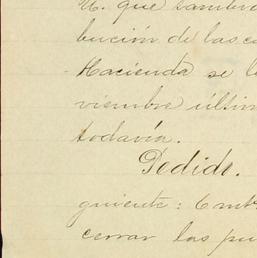 U. que
bución de las c
Hacienda se l
viembre últim
todavía.
Pedido.
guiente: 6 mt
cerrar las pu